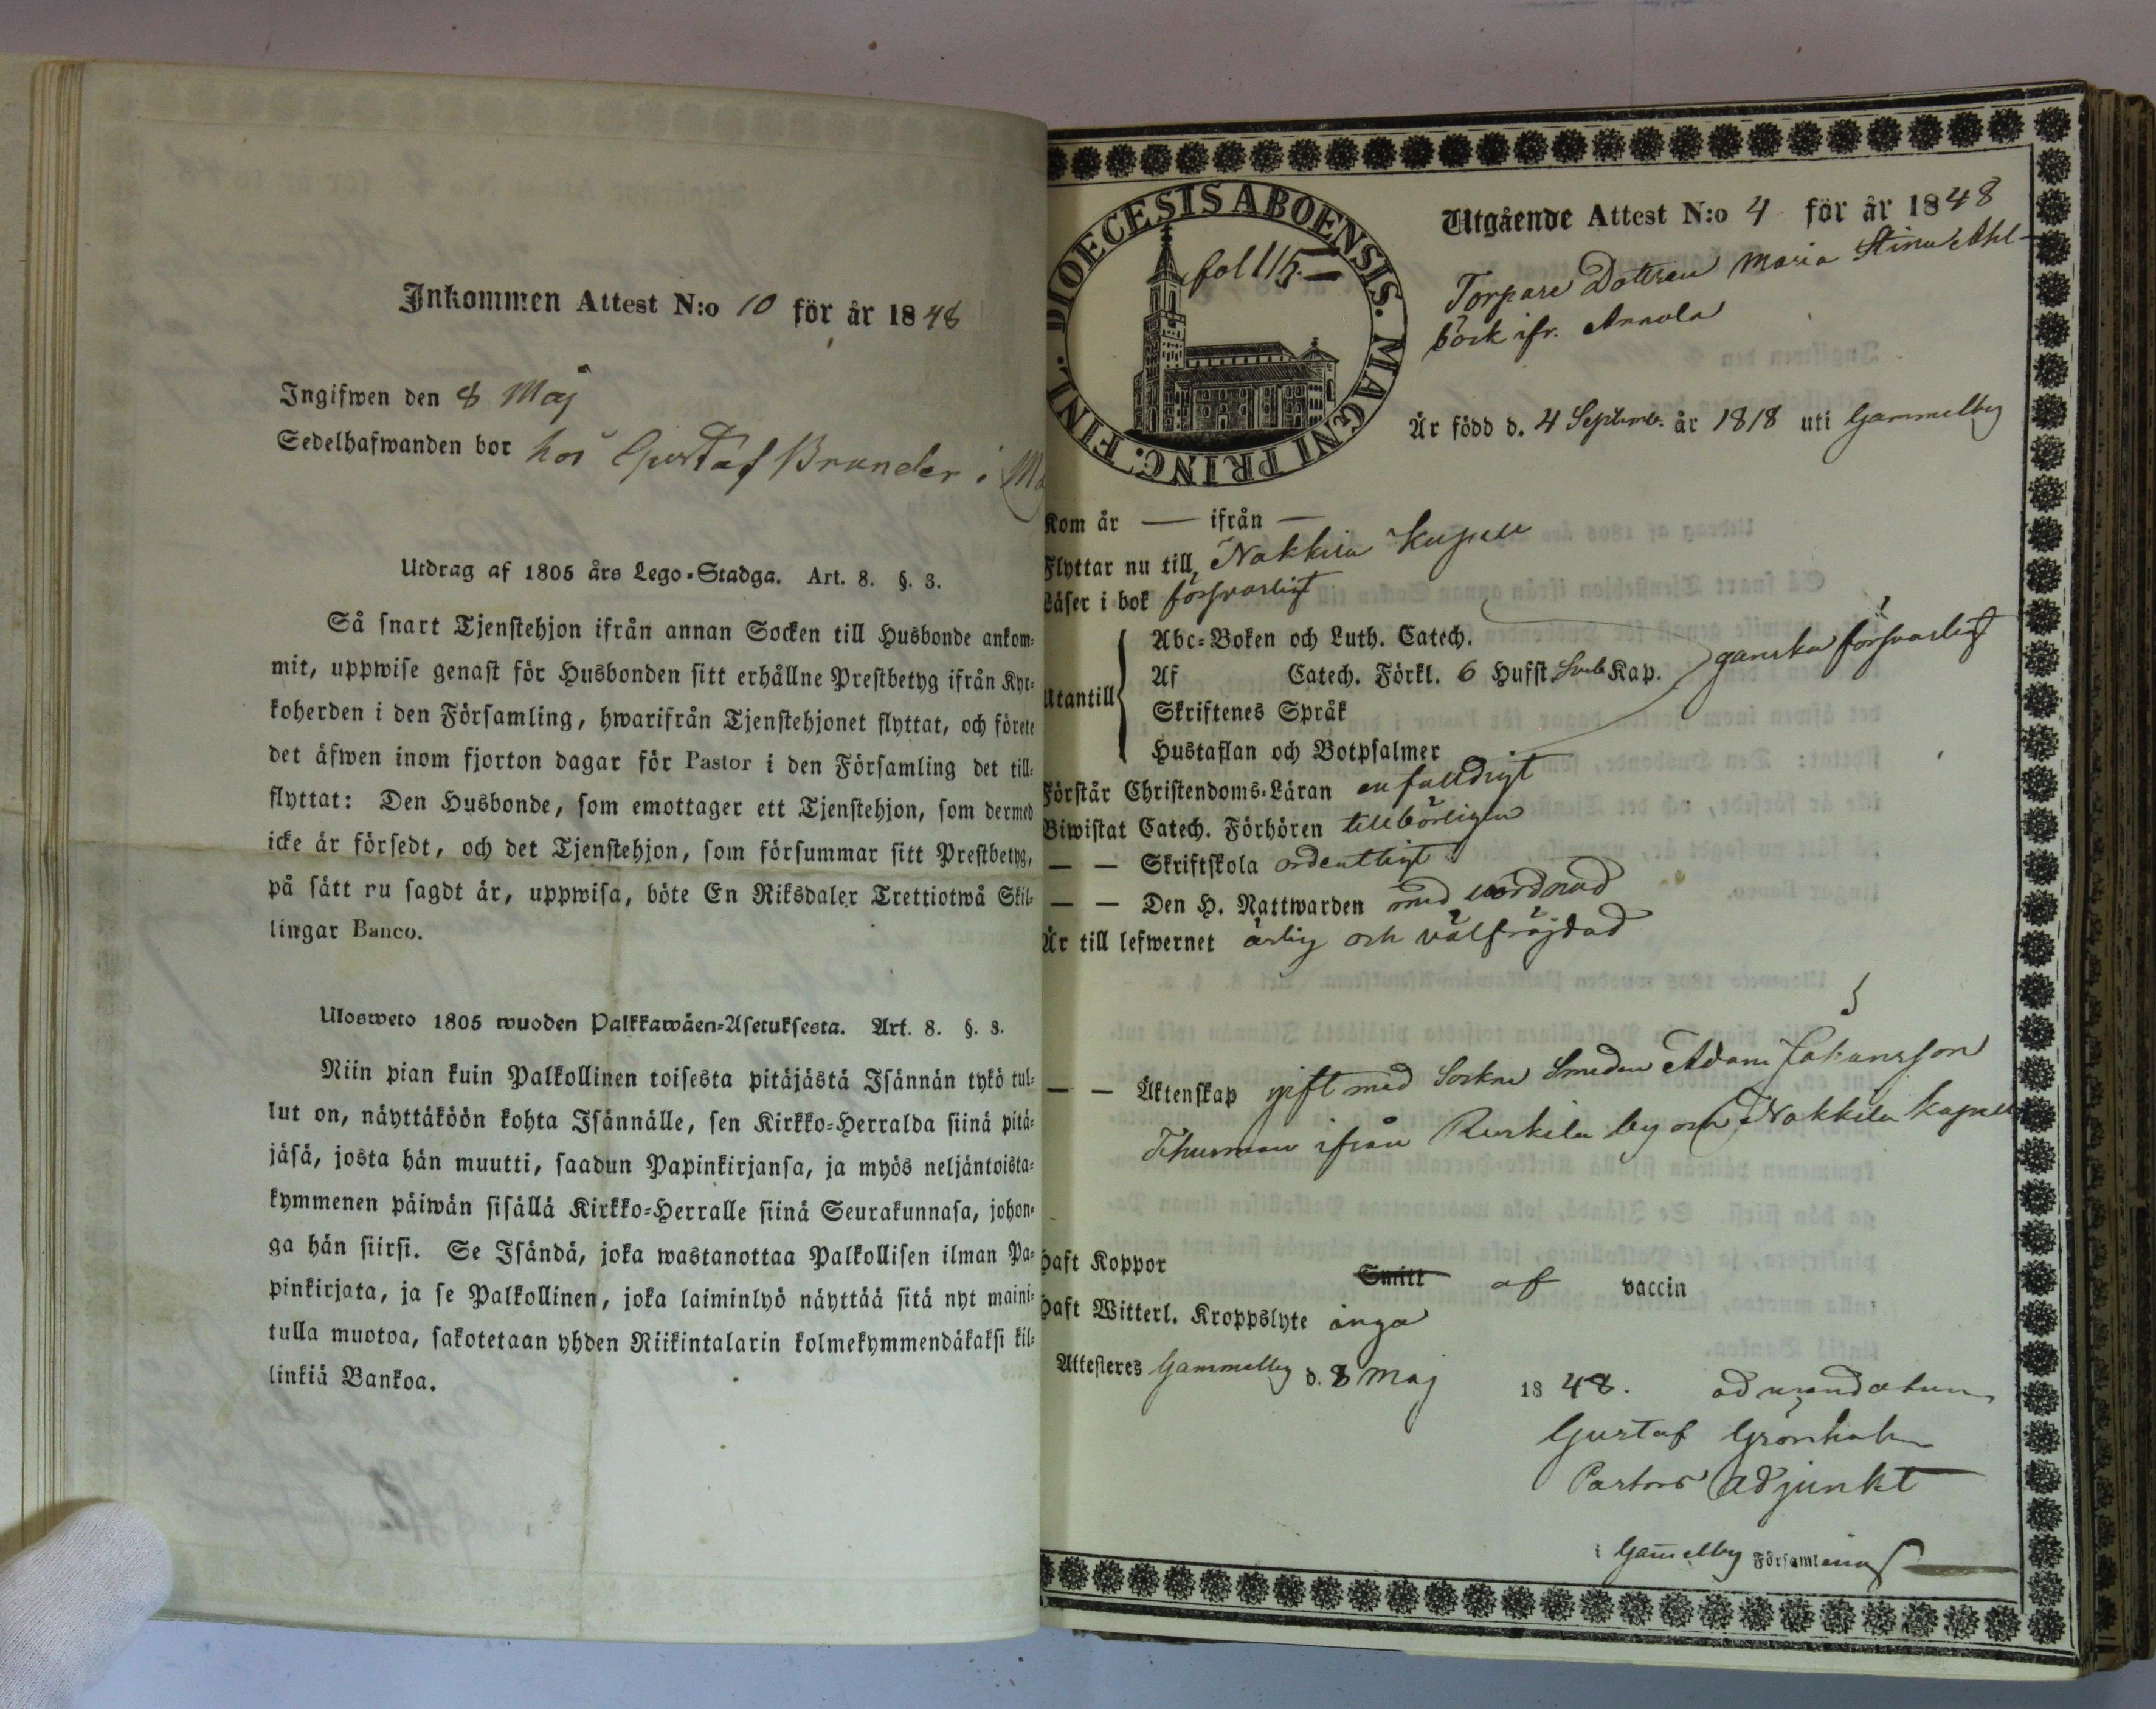 Inkommen Attest N:o 10 för år 1848
Ingifwen den 8 Maj
Sedelhafwanden bor hos Gustaf Brander i
Utdrag af 1805 års Lego-Stadga. Art. 8. §. 3.
Så snart Tjenstehjon ifrån annan Socken till Husbonde ankom-
mit, uppwise genast för Husbonden sitt erhållne Prestbetyg ifrån Kyr-
koherden i den Församling, hwarifrån Tjenstehjonet flyttat, och förete
det äfwen inom fjorton dagar för Pastor i den Församling det till-
flyttat: Den Husbonde, som emottager ett Tjenstehjon, som dermed
icke är försedt, och det Tjenstehjon, som försummar sitt Prestbetyg,
på sätt nu sagdt är, uppwisa, böte En Riksdaler Trettiotwå Skil-
lingar Banco.
Ulosweto 1805 wuoden Palkkawäen-Asetuksesta. Art. 8. §. 3.
Niin pian kuin Palkollinen toisesta pitäjästä Isännän tykö tul-
lut on, näyttäköön kohta Isännälle, sen Kirkko-Herralda siinä pitä-
jäsä, josta hän muutti, saadun Papinkirjansa, ja myös neljäntoista-
kymmenen päiwän sisällä Kirkko-Herralle siinä Seurakunnasa, johon-
ga hän siirsi. Se Isändä, joka wastanottaa Palkollisen ilman Pa-
pinkirjata, ja se Palkollinen, joka laiminlyö näyttää sitä nyt maini-
tulla muotoa, sakotetaan yhden Riikintalarin kolmekymmendäkaksi kil-
linkiä Bankoa.
DIOECESIS ABOENSIS. MAGNI PRINC. FINL.
fol 115.
Utgående Attest N:o 4 för år 1848
Torpare Dottren Maria Stina Ahl-
bäck ifr. Annola
Är född d. 4 Septemb. år 1818 uti Gammelby
Kom år — ifrån —
Flyttar nu till Nakkila Kapell
Läser i bok försvarligt
Utantill
Abc-Boken och Luth. Catech.
Af Catech. Förkl. 6 Hufst. Kap.
ganska försvarligt
Skriftenes Språk
Hustaflan och Botpsalmer
Förstår Christendoms-Läran enfaldigt
Biwistat Catech. Förhören tillbörligen
— — Skriftskola ordentligt
— — Den H. Nattwarden med vördnad
Är till lefwernet ärlig och välfräjdad
— — Äktenskap gift med Sockne Smeden Adam Johansson
Thurman ifrån Ruskila by och Nakkila Kapell
Haft Koppor Smitt af vaccin
Haft Witterl. Kroppslyte inga
Attesteres Gammelby d. 8 Maj 1848. ad mandatum
Gustaf Grönholm
Pastors Adjunkt
i Gam̄elby Församling